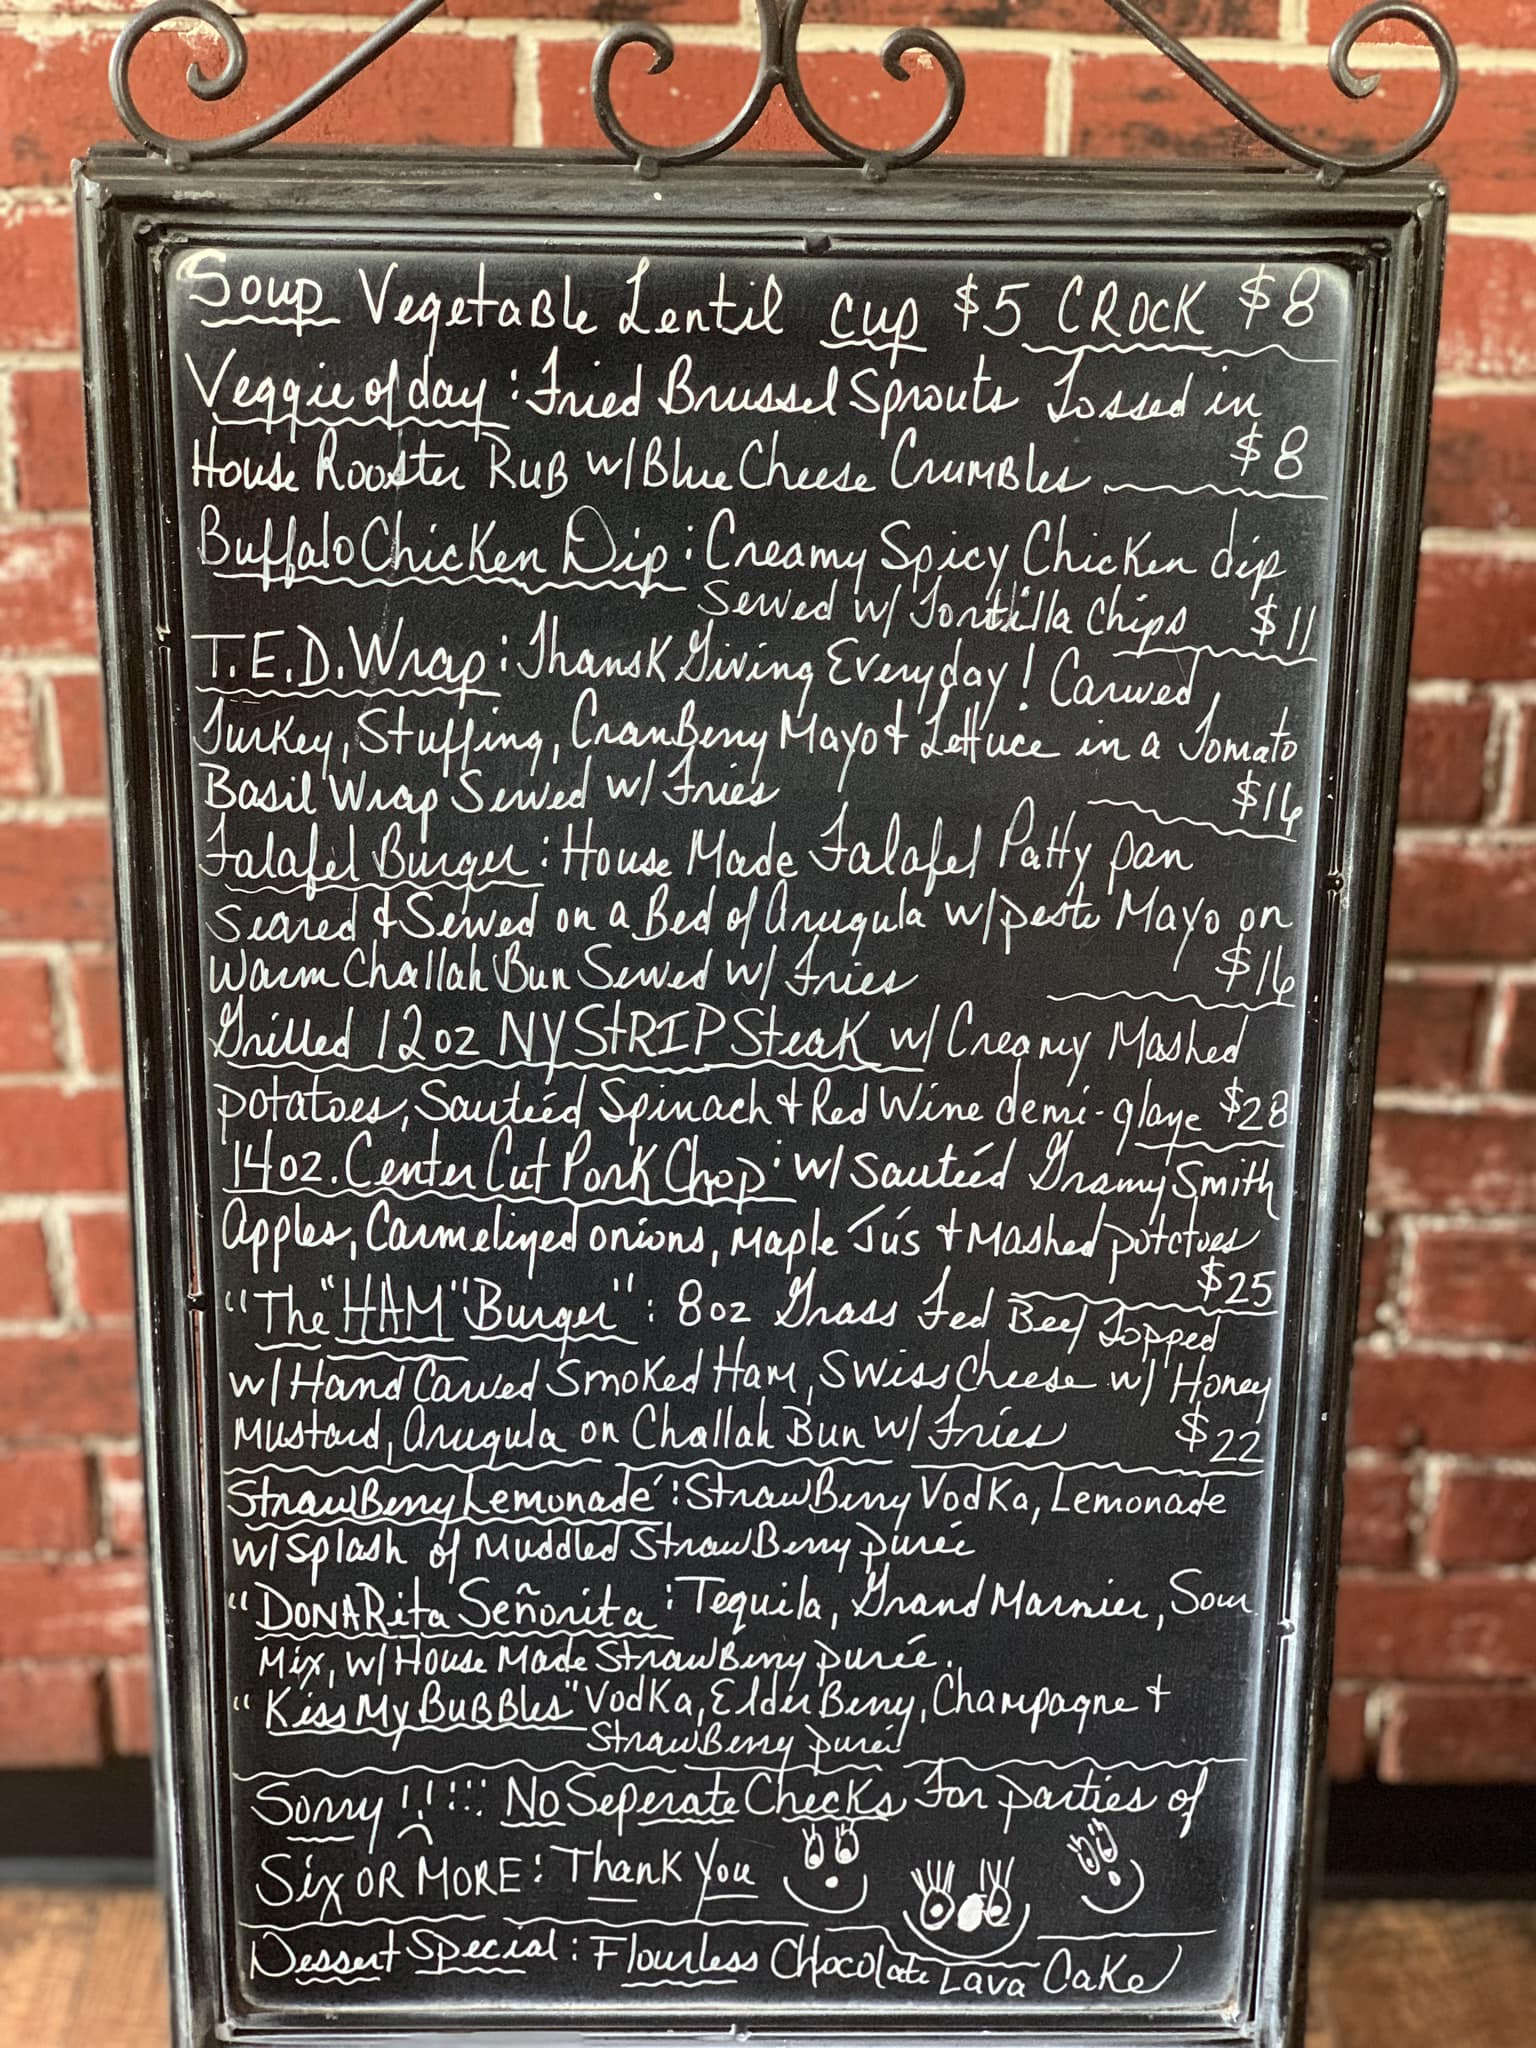 Soup Vegetable Lentil cup $5 CROCK $8
Veggie of day : Fried Brussel Sprouts Tossed in
House Rooster Rub w/ Blue Cheese Crumbles $8
Buffalo Chicken Dip : Creamy Spicy Chicken dip
Served w/ Tortilla Chips $11
T.E.D. Wrap : Thansk Giving Everyday! Carved
Turkey, Stuffing, CranBerry Mayo & Lettuce in a Tomato
Basil Wrap Served w/ Fries $16
Falafel Burger : House Made Falafel Patty pan
Seared & Served on a Bed of Arugula w/ pesto Mayo on
Warm Challah Bun Served w/ Fries $16
Grilled 12oz NY STRIP Steak w/ Creamy Mashed
potatoes, Sauteéd Spinach & Red Wine demi-glaze $28
14oz. Center Cut Pork Chop : w/ Sauteéd Granny Smith
Apples, Carmelized onions, Maple Jús & Mashed potatoes
$25
"The "HAM" Burger" : 8oz Grass Fed Beef Topped
w/ Hand Carved Smoked Ham, Swiss Cheese w/ Honey
Mustard, Arugula on Challah Bun w/ Fries $22
StrawBerry Lemonade : StrawBerry Vodka, Lemonade
w/ Splash of Muddled StrawBerry pureé
"DONARita Señorita : Tequila, Grand Marnier, Sour
Mix, w/ House Made StrawBerry pureé.
"Kiss My Bubbles" Vodka, ElderBerry, Champagne &
StrawBerry pureé
Sorry !!!!! No Seperate Checks For parties of
Six OR MORE : Thank You
Dessert Special : Flourless Chocolate Lava Cake